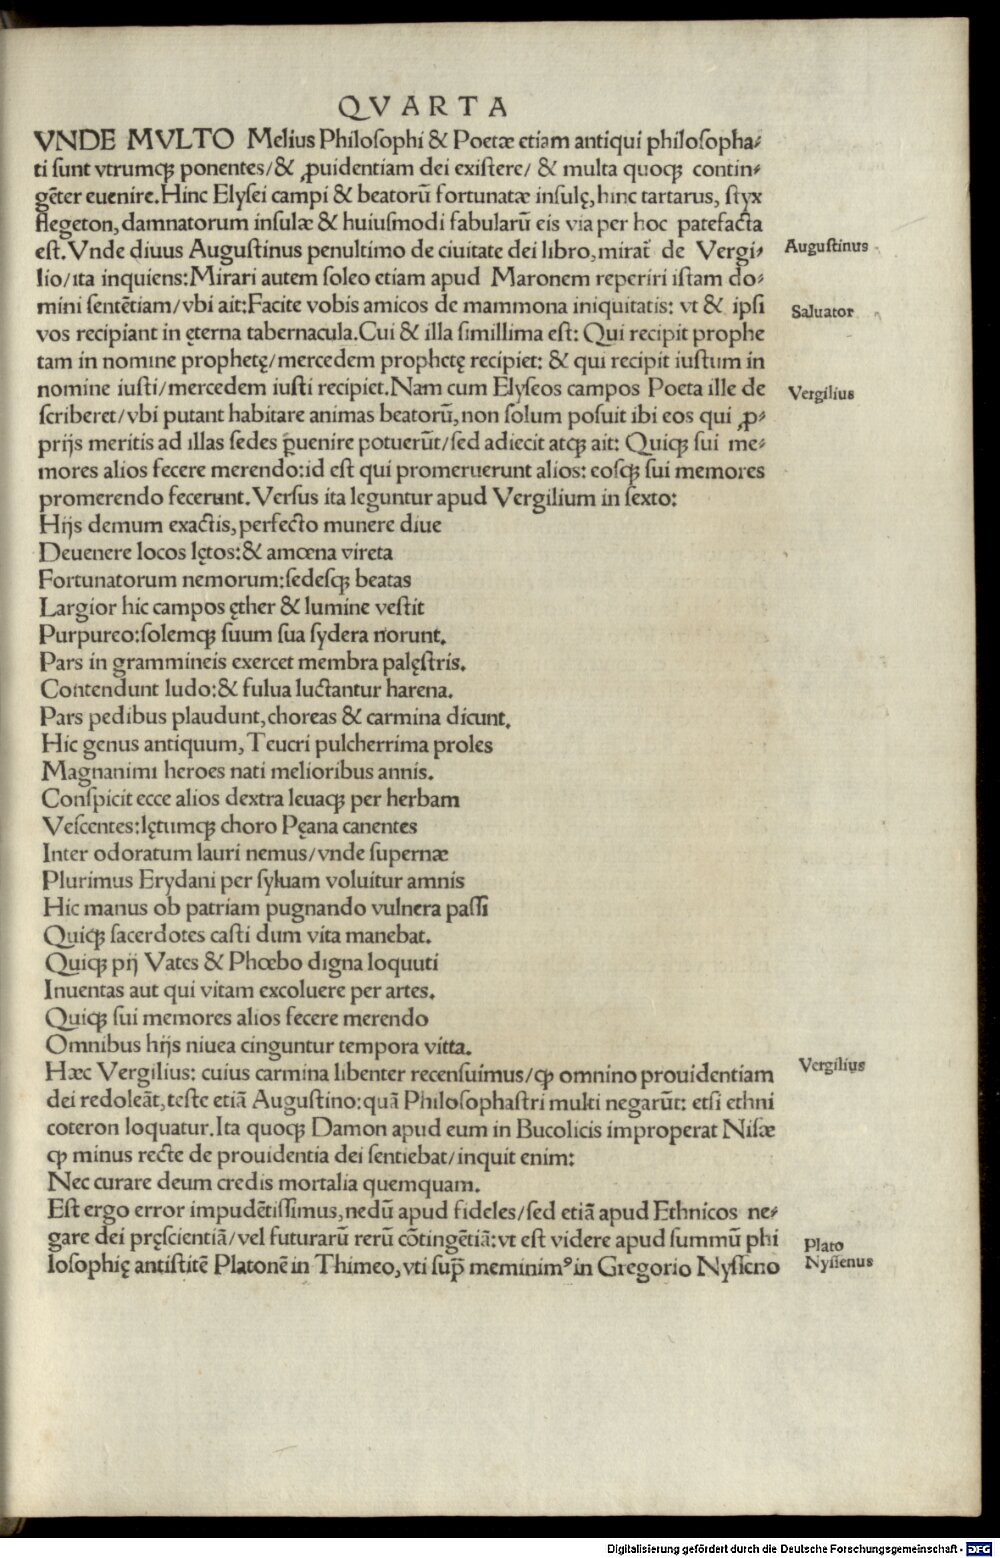 QVARTA
VNDE MVLTO Melius Philosophi & Poetæ etiam antiqui philosopha⸗
ti sunt vtrumqꝫ ponentes/& ꝓuidentiam dei existere/ & multa quoqꝫ contin⸗
gēter euenire.Hinc Elysei campi & beatorū fortunatæ insulę,hinc tartarus, styx
flegeton,damnatorum insulæ & huiusmodi fabularū eis via per hoc patefacta
est.Vnde diuus Augustinus penultimo de ciuitate dei libro,mirat̃ de Vergi⸗
Augustinus
lio/ita inquiens:Mirari autem soleo etiam apud Maronem reperiri istam do⸗
mini sentētiam/vbi ait:Facite vobis amicos de mammona iniquitatis: vt & ipsi
Saluator
vos recipiant in ęterna tabernacula.Cui & illa simillima est: Qui recipit prophe
tam in nomine prophetę/mercedem prophetę recipiet: & qui recipit iustum in
nomine iusti/mercedem iusti recipiet.Nam cum Elyseos campos Poeta ille de
Vergilius
scriberet/vbi putant habitare animas beatorū,non solum posuit ibi eos qui ꝓ⸗
prijs meritis ad illas sedes p̱uenire potuerūt/sed adiecit atqꝫ ait: Quiqꝫ sui me⸗
mores alios fecere merendo:id est qui promeruerunt alios: eosqꝫ sui memores
promerendo fecerunt.Versus ita leguntur apud Vergilium in sexto:
Hijs demum exactis,perfecto munere diue
Deuenere locos lętos:& amœna vireta
Fortunatorum nemorum:sedesqꝫ beatas
Largior hic campos ęther & lumine vestit
Purpureo:solemqꝫ suum sua sydera norunt.
Pars in grammineis exercet membra palęstris.
Contendunt ludo:& fulua luctantur harena.
Pars pedibus plaudunt,choreas & carmina dicunt.
Hic genus antiquum,Teucri pulcherrima proles
Magnanimi heroes nati melioribus annis.
Conspicit ecce alios dextra leuaqꝫ per herbam
Vescentes:lętumqꝫ choro Pęana canentes
Inter odoratum lauri nemus/vnde supernæ
Plurimus Erydani per syluam voluitur amnis
Hic manus ob patriam pugnando vulnera passi
Quiqꝫ sacerdotes casti dum vita manebat.
Quiqꝫ pij Vates & Phœbo digna loquuti
Inuentas aut qui vitam excoluere per artes.
Quiqꝫ sui memores alios fecere merendo
Omnibus hijs niuea cinguntur tempora vitta.
Hæc Vergilius: cuius carmina libenter recensuimus/ꝙ omnino prouidentiam
Vergilius
dei redoleāt,teste etiā Augustino:quā Philosophastri multi negarūt: etsi ethni
coteron loquatur.Ita quoqꝫ Damon apud eum in Bucolicis improperat Nisæ
ꝙ minus recte de prouidentia dei sentiebat/inquit enim:
Nec curare deum credis mortalia quemquam.
Est ergo error impudētissimus,nedū apud fideles/sed etiā apud Ethnicos ne⸗
gare dei pręscientiā/vel futurarū rerū cōtingētiā:vt est videre apud summū phi
Plato
losophię antistitē Platonē in Thimeo,vti sup̄ meminimꝰ in Gregorio Nysseno
Nyssenus
Digitalisierung gefördert durch die Deutsche Forschungsgemeinschaft - DFG